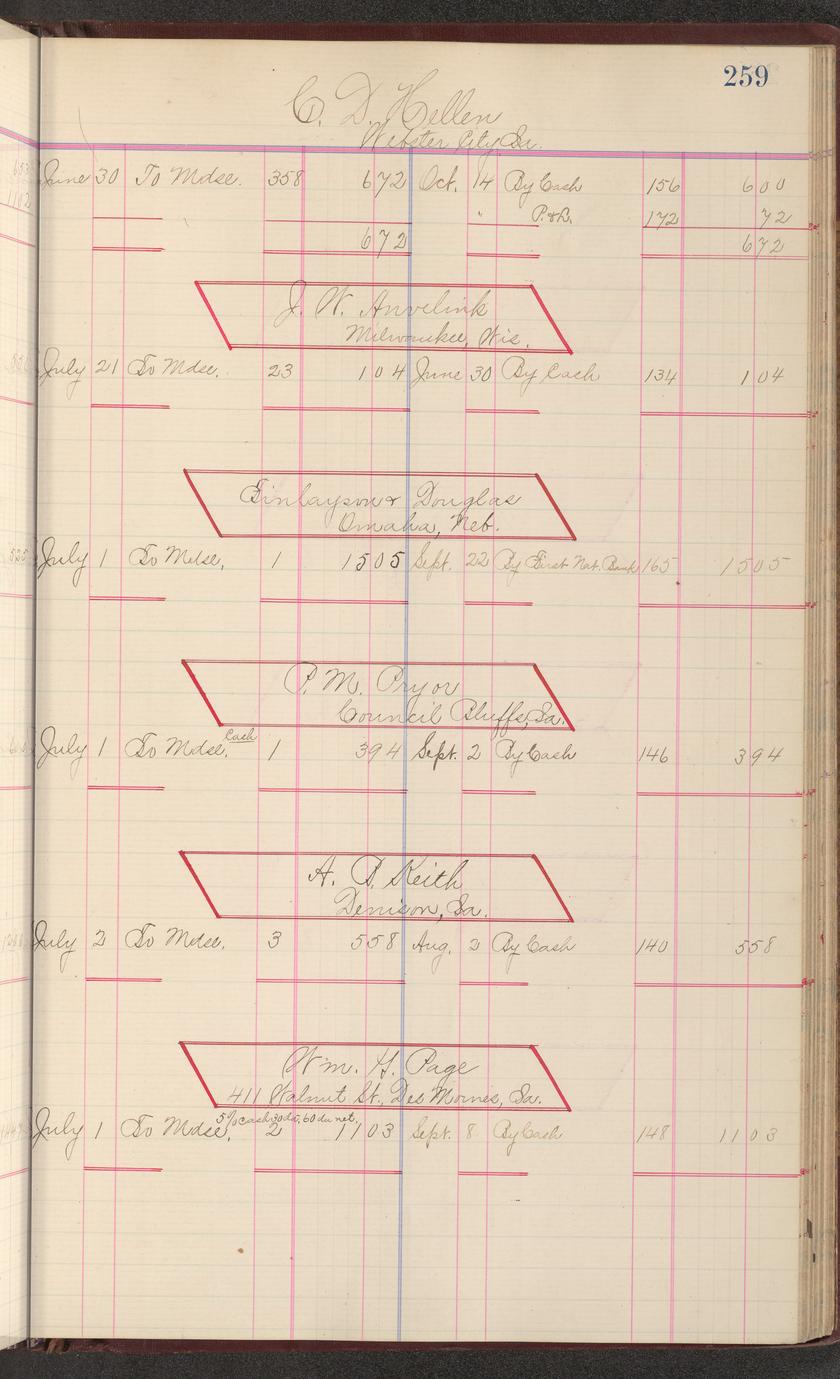 259
C. D. Hellen
Webster City, Ia.
June 30 To Mdse. 358 672 Oct. 14 By Cash 156 600
" P. & L. 172 72
672 672
J. W. Anvelink
Milwaukee, Wis.
July 21 To Mdse. 23 104 June 30 By Cash 134 104
Finlayson & Douglas
Omaha, Neb.
July 1 To Mdse. 1 1505 Sept. 22 By First Nat. Bank 165 1505
P. M. Pryor
Council Bluffs, Ia.
Cash
July 1 To Mdse. 1 394 Sept. 2 By Cash 146 394
A. D. Keith
Denison, Ia.
July 2 To Mdse. 3 558 Aug. 2 By Cash 140 558
Wm. H. Page
411 Walnut St., Des Moines, Ia.
5% Cash 30 da, 60 da net.
July 1 To Mdse, 2 1103 Sept. 8 By Cash 148 1103